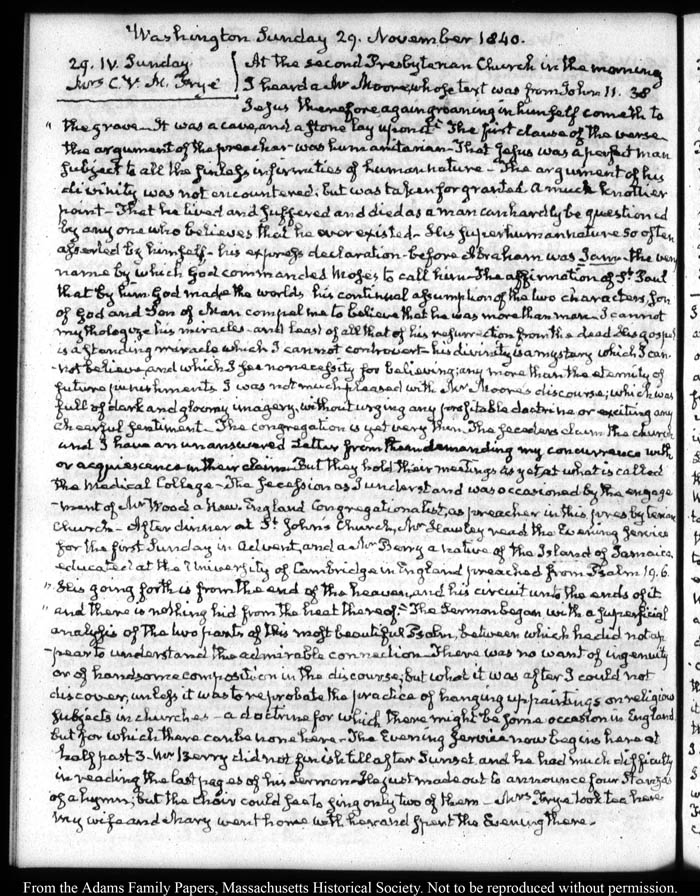 Washington Sunday 29. November 1840.
29. IV. Sunday
Mrs C. V. M. Frye
At the second Presbyterian Church in the morning
I heard a Mr Moore, whose text was from John 11. 38
Jesus therefore again groaning in himself cometh to
" the grave— It was a cave, and a stone lay upon it." The first clause of the verse
the argument of the preacher was humanitarian— That Jesus was a perfect man
subject to all the sinless infirmities of human nature— The argument of his
divinity was not encountered, but was taken for granted. A much knottier
point— That he lived and suffered and died as a man can hardly be questioned
by any one who believes that he ever existed— His superhuman nature so often
asserted by himself— his express declaration— before Abraham was I am— the very
name by which God commanded Moses to call him— The affirmation of St. Paul
that by him God made the worlds, his continual assumption of the two characters, Son
of God and Son of Man compel me to believe that he was more than man. I cannot
mythologize his miracles— and least of all that of his resurrection from the dead. His gospel
is a standing miracle which I cannot controvert— his divinity is a mystery which I can-
-not believe, and which I see no necessity for believing; any more than the eternity of
future punishments. I was not much pleased with Mr Moore's discourse; which was
full of dark and gloomy imagery, without urging any profitable doctrine or exciting any
chearful sentiment. The congregation is yet very thin. The seceders claim the church
and I have an unanswered Letter from them demanding my concurrence with
or acquiescence in their claim— But they hold their meetings as yet at what is called
the Medical College— The secession as I understand was occasioned by the engage
-ment of Mr Wood a New-England Congregationalist, as preacher in this presbyterian
Church— After dinner at St. John's Church, Mr Hawley read the Evening Service
for the first Sunday in Advent, and a Mr Berry a native of the Island of Jamaica,
educated at the University of Cambridge in England preached from Psalm 19. 6.
" His going forth is from the end of the heaven, and his circuit unto the ends of it
" and there is nothing hid from the heat thereof." The Sermon began with a superficial
analysis of the two parts of this most beautiful Psalm, between which he did not ap
-pear to understand the admirable connection. There was no want of ingenuity
or of handsome composition in the discourse; but what it was after I could not
discover, unless it was to reprobate the practice of hanging up paintings on religious
subjects in churches— a doctrine for which there might be some occasion in England
but for which there can be none here— The Evening Service now begins here at
half past 3— Mr Berry did not finish till after Sunset and he had much difficulty
in reading the last pages of his Sermon— He just made out to announce four Stanzas
of a hymn; but the Choir could see to sing only two of them— Mrs Frye took tea here
My wife and Mary went home with her and spent the Evening there.
From the Adams Family Papers, Massachusetts Historical Society. Not to be reproduced without permission.